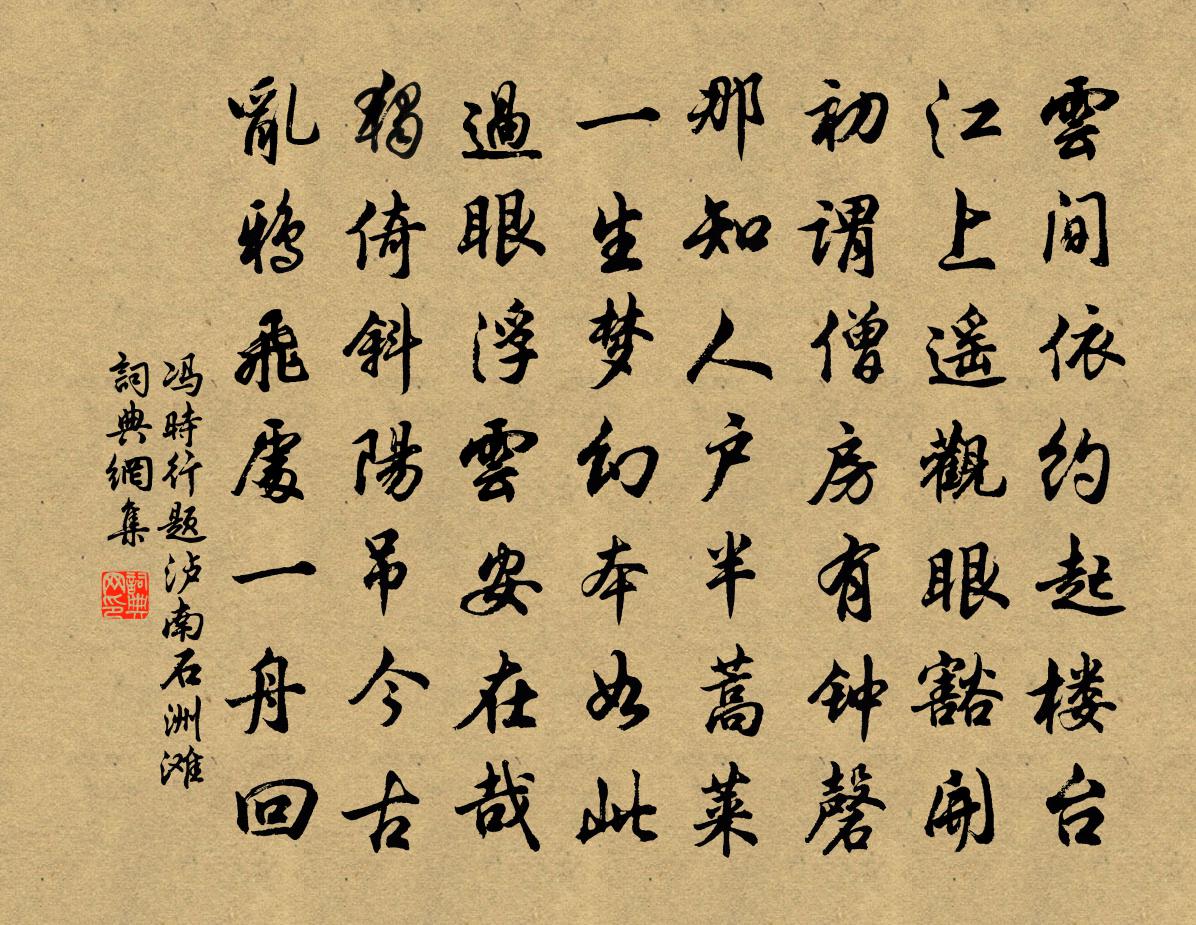 雲間依约起楼台
江上遥觀眼豁開
初谓僧房有钟磬
那知人户半蒿菜
一生梦幻本如此
過眼浮雲安在哉
獨倚斜陽吊今古
亂鸦飛處一舟回
冯時行题泸南石洲滩
詞典網集
詞典网印